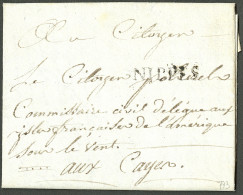 Au Citoyen
Le Citoyen polverel
NIPPES
Committaire civil délégué aux
isles françaises de l'amérique
sous le vent.
aux Cayes.